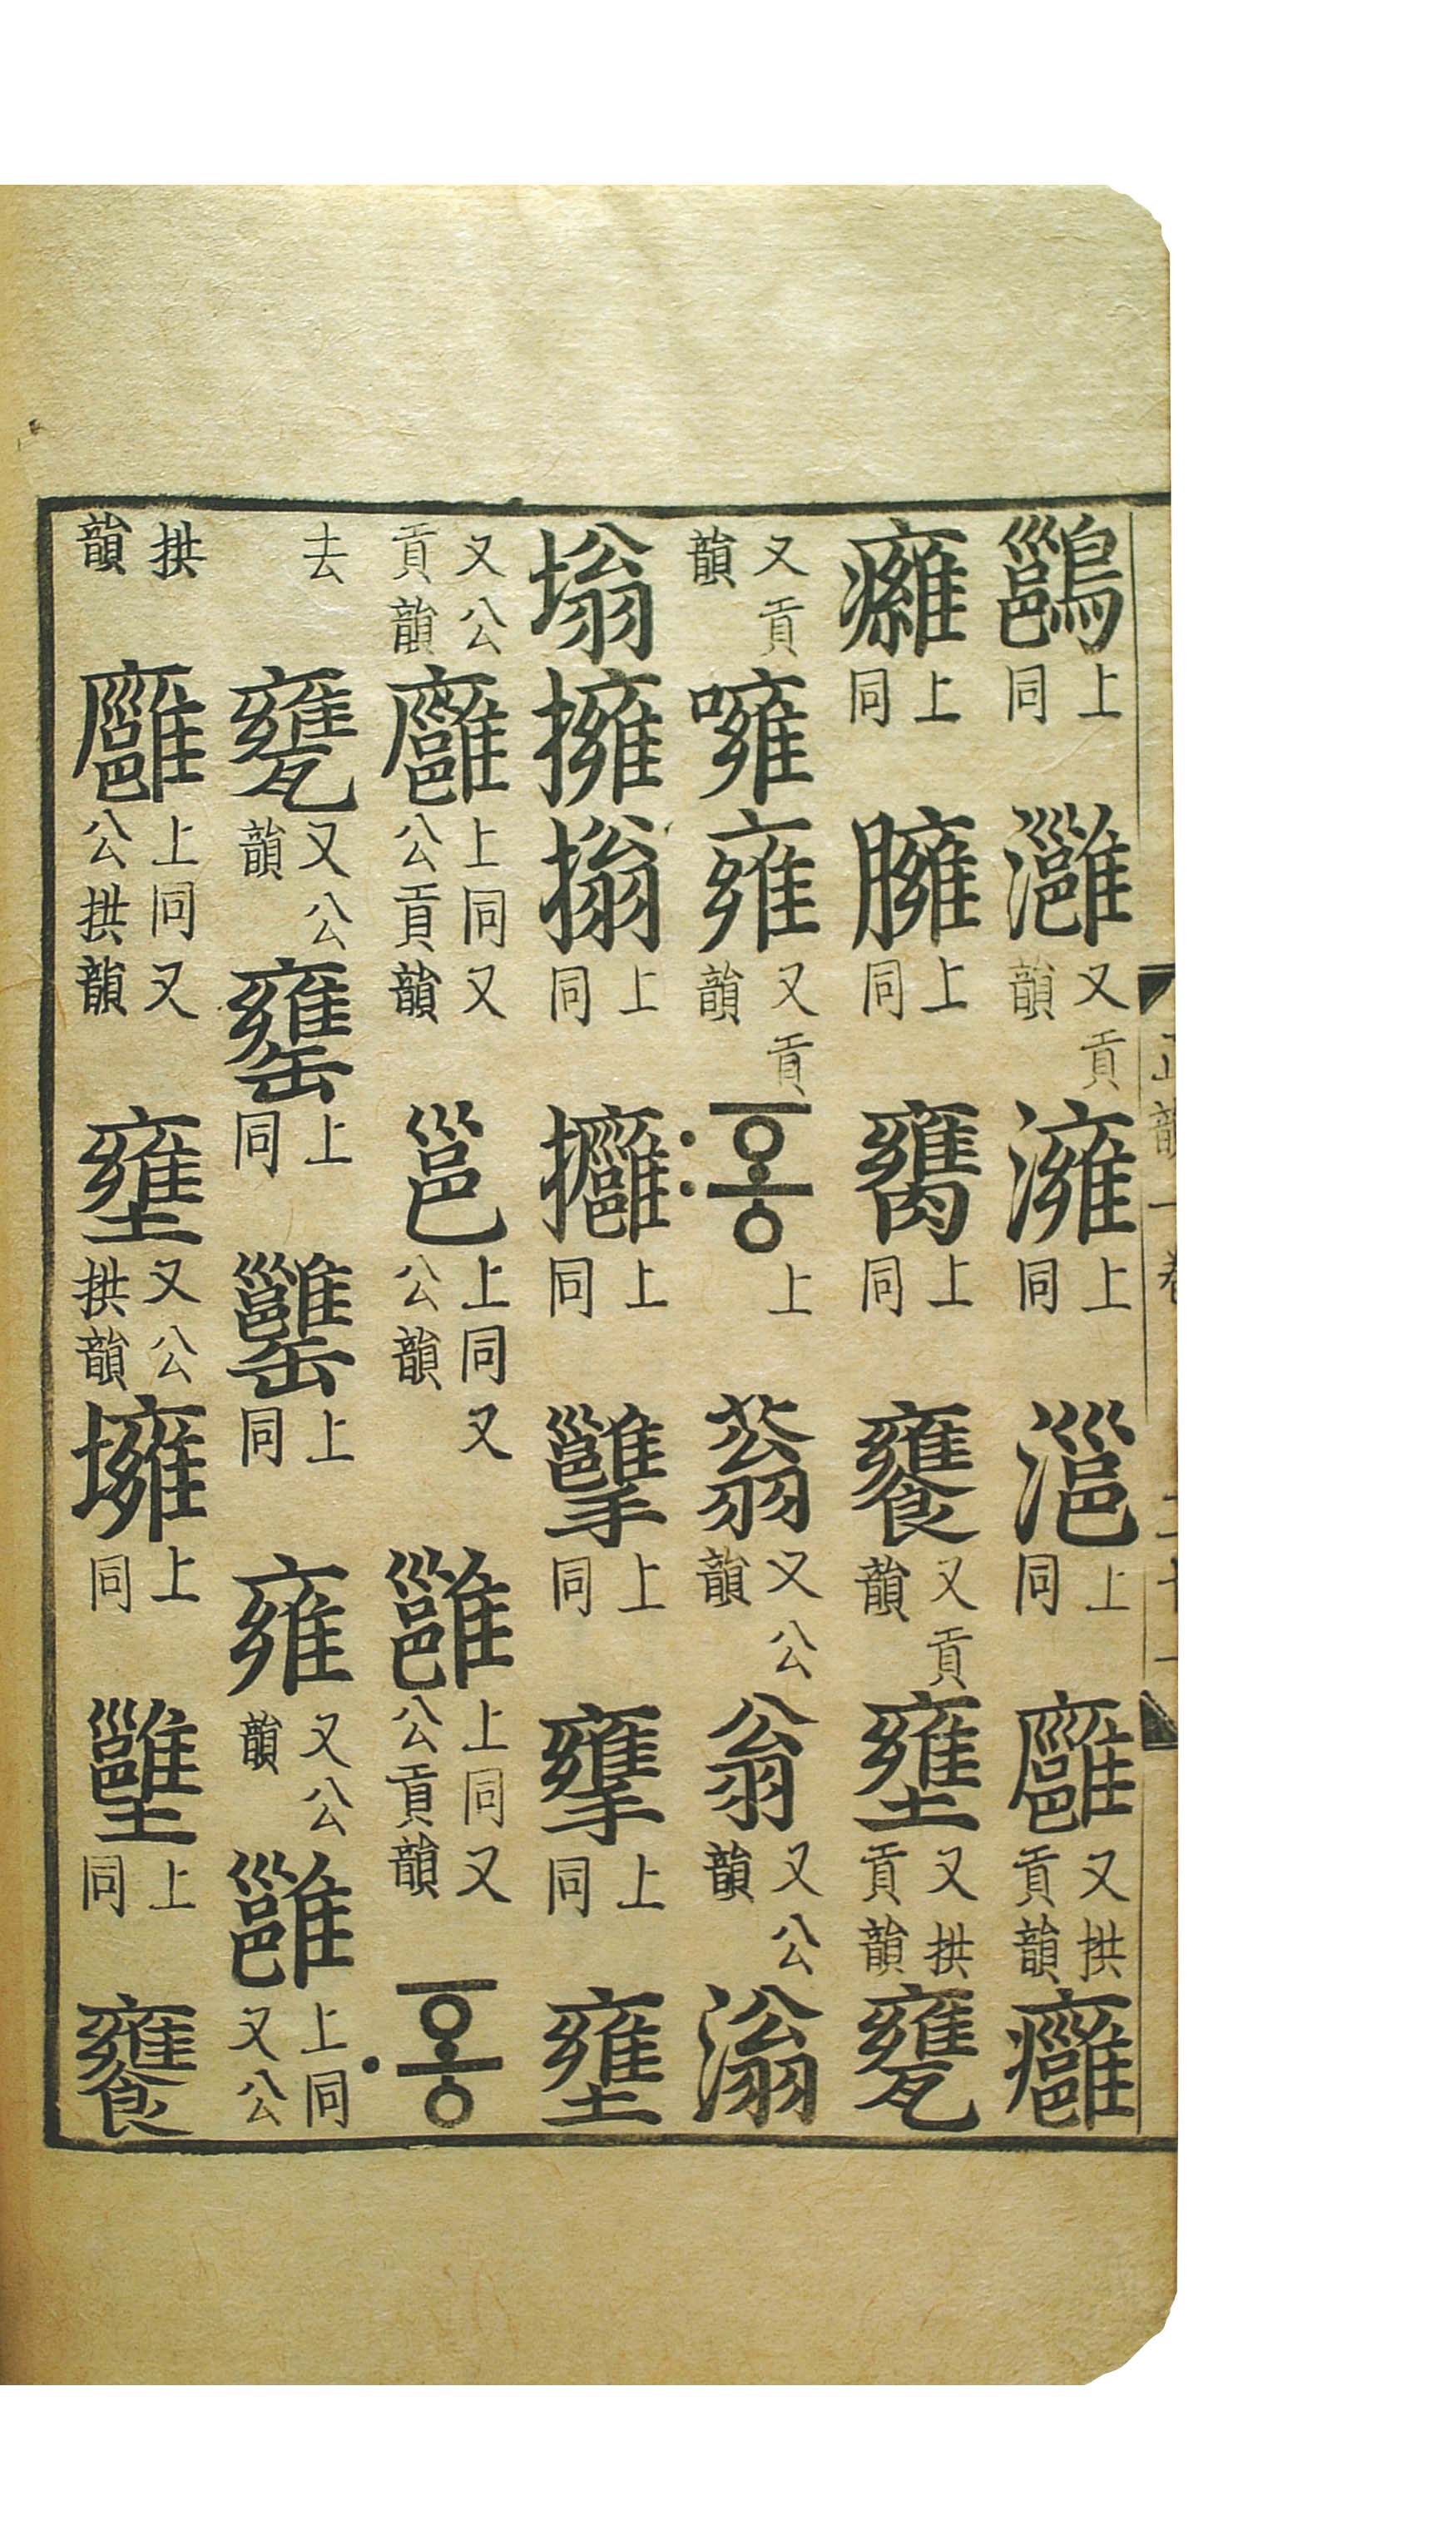 上同灉又貢韻澭上同㴩上同廱又拱貢韻癰
癕上同臃上同上同饔又貢韻壅又拱貢韻甕
又貢韻噰雍又貢韻ᅙᅩᇰ上蓊又公韻翁又公韻滃
塕擁㨣上同上同上同上同壅
又公貢韻廱上同又公貢韻邕上同又公韻雝上同又公貢韻ᅙᅩᇰ
去甕又公韻罋上同上同雍又公韻雝上同又公
拱韻廱上同又公拱韻壅又公拱韻㙲上同上同饔